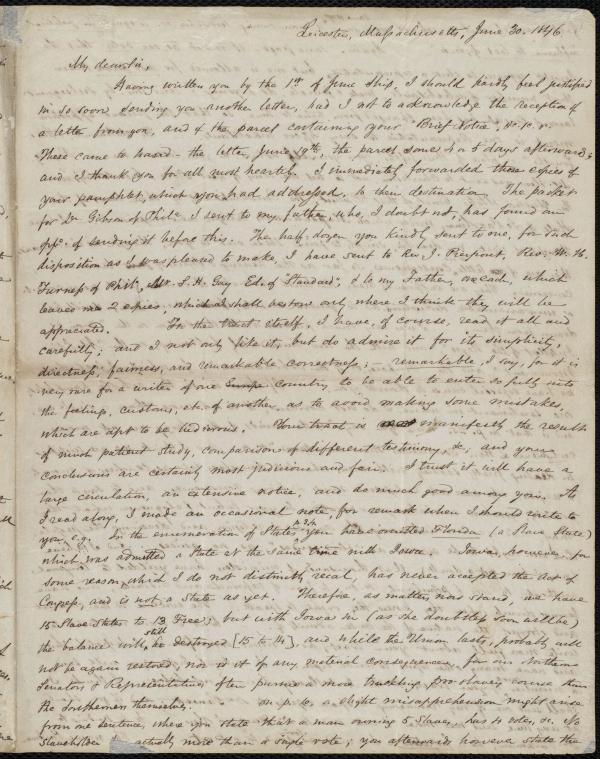 Leicester, Massachusetts, June 30. 1846
My dear Sir,
Having written you by the 1st of June Ship, I should hardly feel justified
in so soon sending you another letter, had I not to acknowledge the reception of
a letter from you, and of the parcel containing your "Brief Notice", &c. &c.
These came to hand - the letter, June 19th, the parcel some 4 or 5 days afterwards;
and I thank you for all most heartily. I immediately forwarded those copies of
your pamphlet, which you had addressed, to their destination. The packet
for Dr. Gibson of Phila. I sent to my father, who, I doubt not, has found an
oppy. of sending it before this. The half-dozen you kindly sent to me, for such
disposition as I was pleased to make, I have sent to Rev. J. Pierpont, Rev. W. H.
Furness of Phila., Mr. S. H. Gay, Ed. of "Standard", & to my Father, one each, which
leaves me 2 copies, which I shall bestow only where I think they will be
appreciated. For the tract itself, I have, of course, read it all and
carefully; and I not only like it, but do admire it for its simplicity,
directness, fairness, and remarkable correctness; remarkable, I say, for it is
very rare for a writer of one country to be able to enter so fully into
the feelings, customs, etc. of another, as to avoid making some mistakes,
which are apt to be ludicrous. Your tract is manifestly the result
of much patient study, comparison of different testimony, &c; and your
conclusions are certainly most judicious and fair. I trust it will have a
large circulation, an extensive notice, and do much good among you. As
I read along, I made an occasional note, for remark when I should write to
you, e.g. In the enumeration of States, p. 34, you have omitted Florida (a Slave State)
which was admitted a State at the same time with Iowa. Iowa, however, for
some reason which I do not distinctly recal, has never accepted the Act of
Congress, and is not a State as yet. Therefore, as matters now stand, we have
15 Slave States to 13 Free; but with Iowa in (as she doubtless soon will be)
the balance will still be destroyed [15 to 14], and while the Union lasts, probably will
not be again restored, nor is it of any material consequence, for our Northern
Senators & Representatives often pursue a more truckling pro-slavery course than
the Southerners themselves. On p. 6, a slight misapprehension might arise
from one sentence, where you state that a man owning 5 slaves, has 4 votes, &c. No
Slaveholder actually more than a single vote; you afterwards however state the